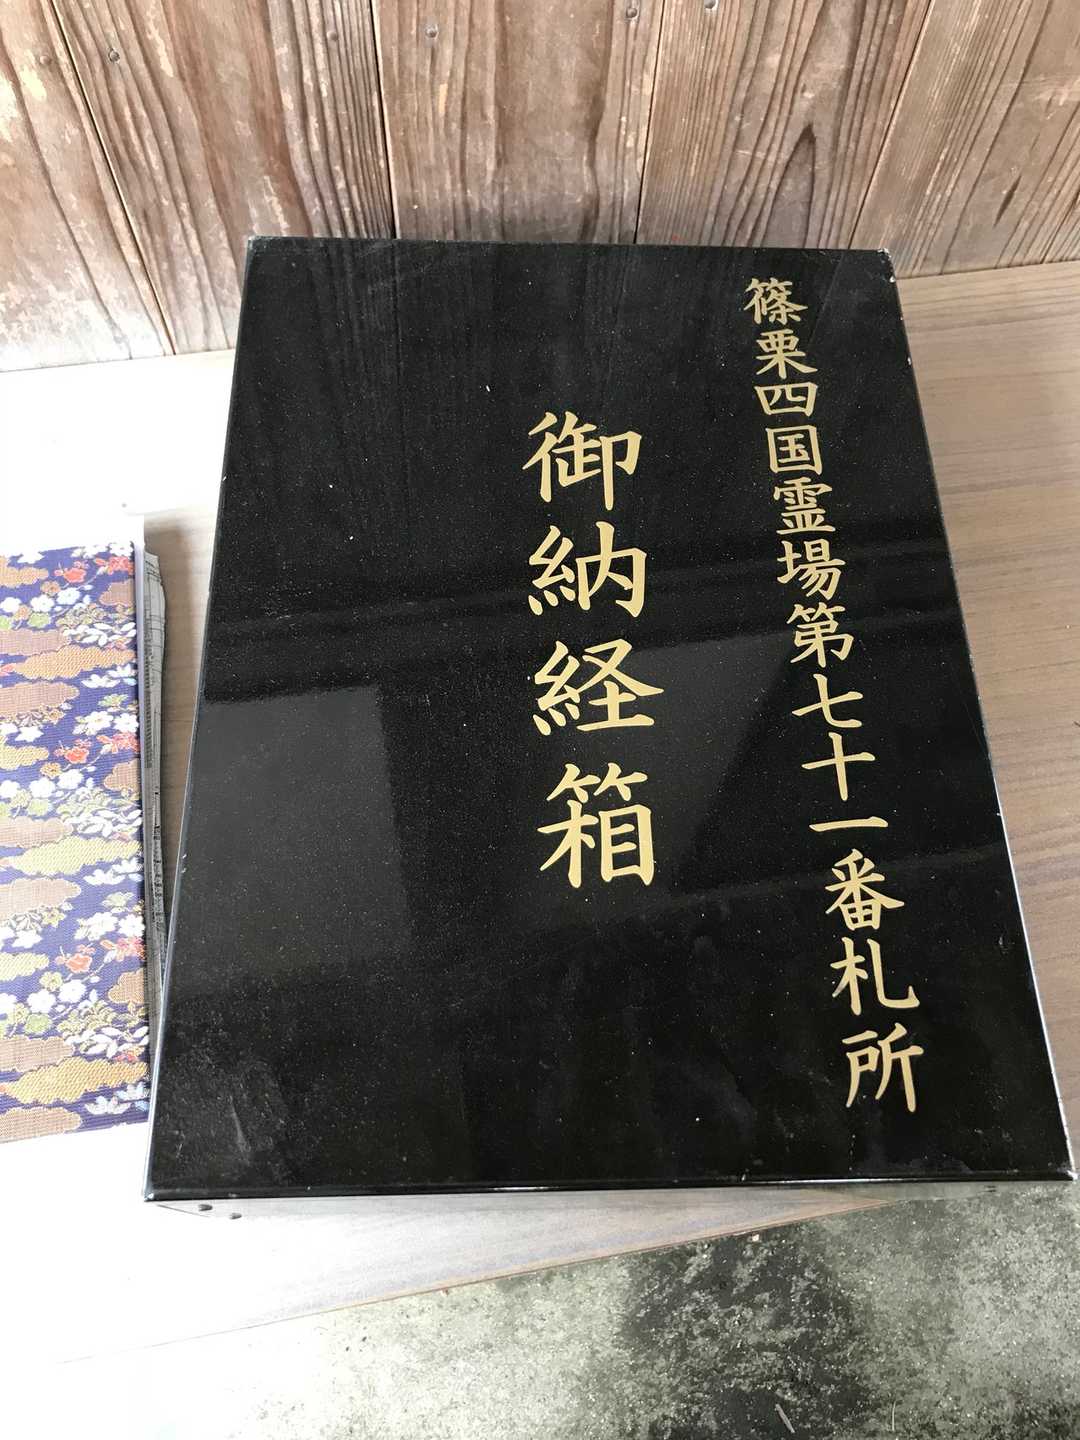 篠栗四国霊場第七十一番札所
御納経箱